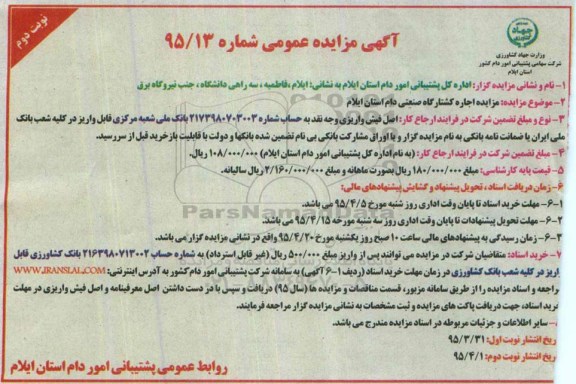 نوبت دوم
آگهی مزایده عمومی شماره ۹۵/۱۳
جهاد
وزارت جهاد کشاورزی
شرکت سهامی پشتیبانی امور دام کشور
استان ایلام
۱-نام و نشانی مزایده گزار: اداره کل پشتیبانی امور دام استان ایلام به نشانی: ایلام ،فاطمیه ، سه راهی دانشگاه ، جنب نیروگاه برق
۲-موضوع مزایده: مزایده اجاره کشتارگاه صنعتی دام استان ایلام
۳- نوع و مبلغ تضمین شرکت در فرایند ارجاع کار: اصل فیش واریزی وجه نقد به حساب شماره ۲۱۷۳۹۸۰۷۰۳۰۰۲ بانک ملی شعبه مرکزی قابل واریز در کلیه شعب بانک
ملی ایران یا ضمانت نامه بانکی به نام مزایده گزار و یا اوراق مشارکت بانکی بی نام تضمین شده بانکها و دولت با قابلیت بازخرید قبل از سررسید.
۴- مبلغ تضمین شرکت در فرایند ارجاع کار: (به نام اداره کل پشتیبانی امور دام استان ایلام) ۱۰۸/۰۰۰/۰۰۰ ریال.
۵- قیمت پایه کارشناسی: مبلغ ۱۸۰/۰۰۰/۰۰۰ ریال بصورت ماهانه و مبلغ ۲/۱۶۰/۰۰۰/۰۰۰ ریال سالیانه.
۶-زمان دریافت اسناد ، تحویل پیشنهاد و گشایش پیشنهادهای مالی:
۶-۱- مهلت خرید اسناد تا پایان وقت اداری روز شنبه مورخ ۹۵/۴/۵ می باشد.
۶-۲- مهلت تحویل پیشنهادات تا پایان وقت اداری روز سه شنبه مورخه ۹۵/۴/۱۵ می باشد.
۶-۳- زمان رسیدگی به پیشنهادهای مالی ساعت ۱۰ صبح روز یکشنبه مورخ ۹۵/۴/۲۰ واقع در نشانی مزایده گزار می باشد.
۷- خرید اسناد: متقاضیان شرکت در مزایده می توانند پس از واریز مبلغ ۵۰۰/۰۰۰ ریال (غیر قابل استرداد) به شماره حساب ۲۱۶۳۹۸۰۷۱۳۰۰۲ بانک کشاورزی قابل
واریز در کلیه شعب بانک کشاورزی در زمان مهلت خرید اسناد (ردیف ۱-۶ آگهی) به سامانه شرکت پشتیبانی امور دام کشور به آدرس اینترنتی: WWW.IRANSLAL.COM
مراجعه و اسناد مزایده را از طریق سامانه مزبور، قسمت مناقصات و مزایده ها (سال ۹۵) دریافت و سپس با در دست داشتن اصل معرفینامه و اصل فیش واریزی در مهلت
خرید اسناد، جهت دریافت پاکت های مزایده و ثبت مشخصات به نشانی مزایده گزار مراجعه فرمایند.
سایر اطلاعات و جزئیات مربوطه در اسناد مزایده مندرج می باشد.
تاریخ انتشار نوبت اول: ۹۵/۳/۳۱
تاریخ انتشار نوبت دوم: ۹۵/۴/۱
روابط عمومی پشتیبانی امور دام استان ایلام
ParsNamadData